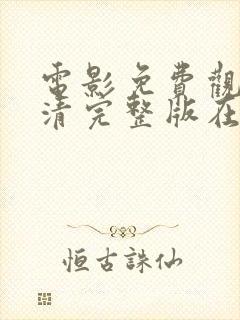 電影免費觀
清完整版在
恒古誅仙